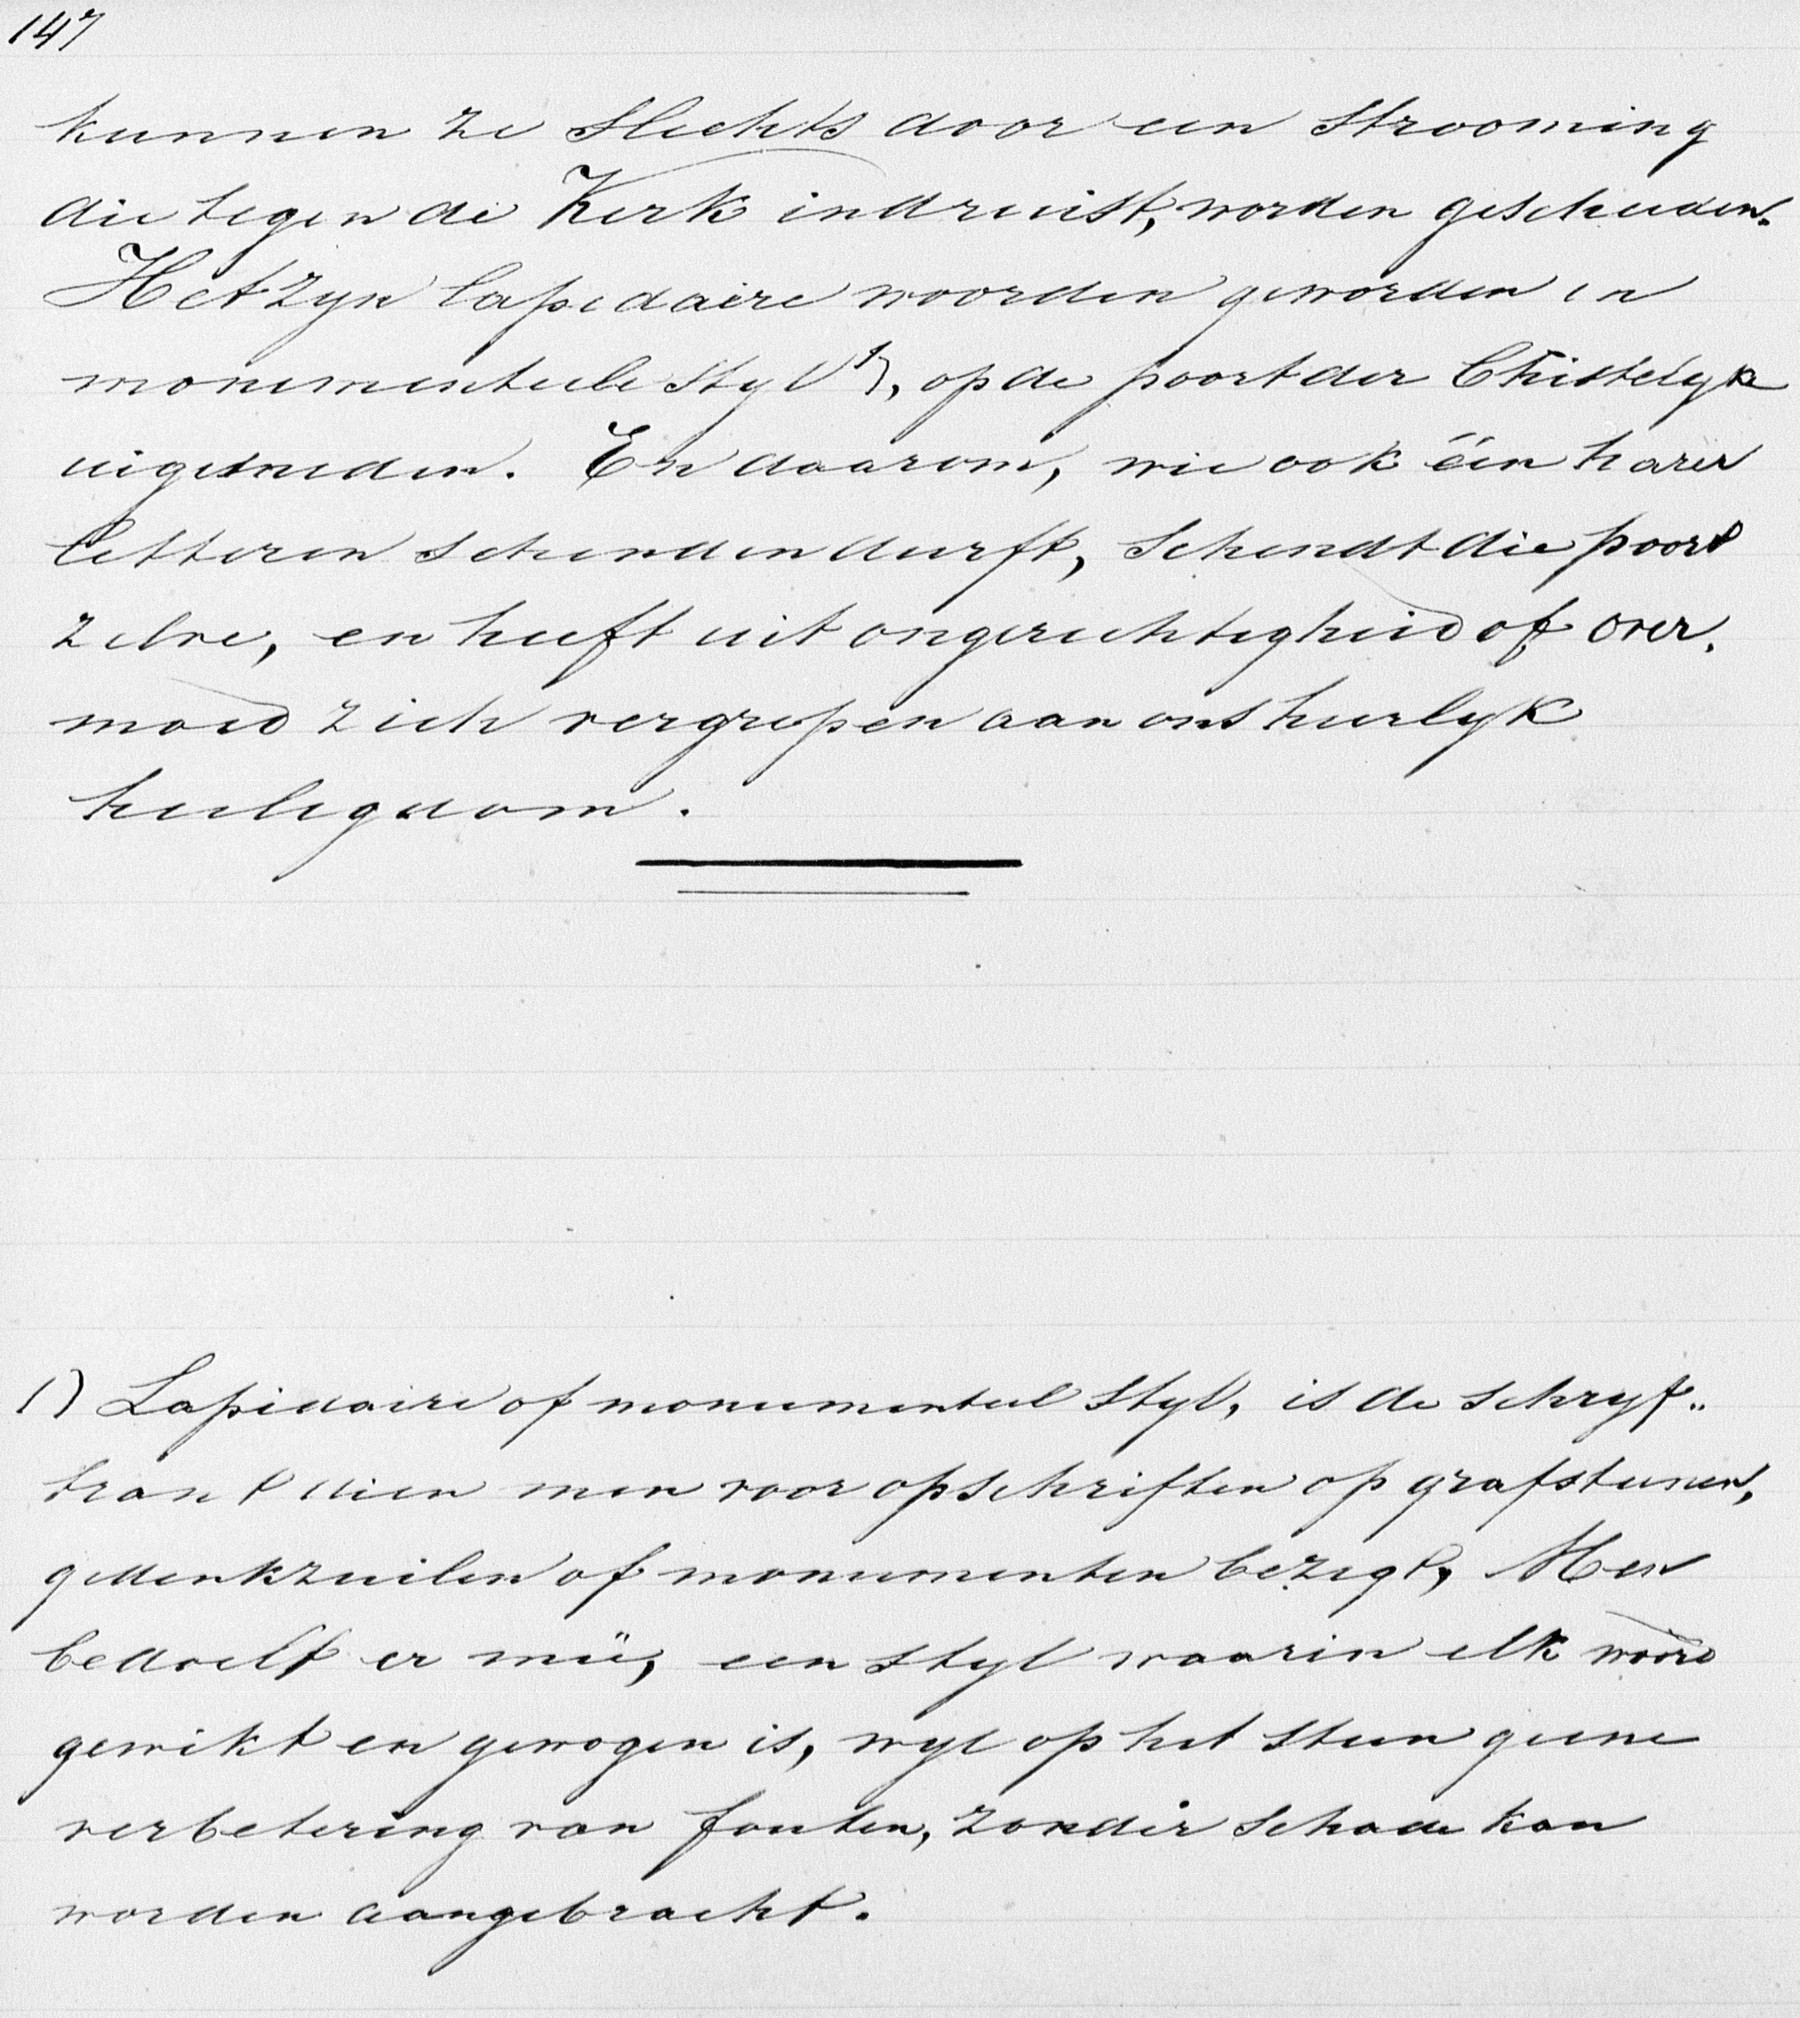 147
kunnen ze slechts door een strooming
die tegen de Kerk indruist, worden gescheiden.
Het zyn lapidaire woorden geworden in
monumenteele styl 1), op de poort der Christelyk
uigesneden. En daarom, wie ook één harer
letteren schenden durft, schendt die poort
zelve, en heeft uit ongerechtigheid of over„
moed zich vergrepen aan ons heerlyk
heiligdom.
1) Lapidaire of monumenteel styl, is de schryf„
trant dien men voor opschriften op grafsteenen,
gedenkzuilen of monumenten bezigt, Men
bedoelt er meê, een styl waarin elk woord
gewikt en gewogen is, wyl op het steen geene
verbetering van fouten, zonder schade kan
worden aangebracht.